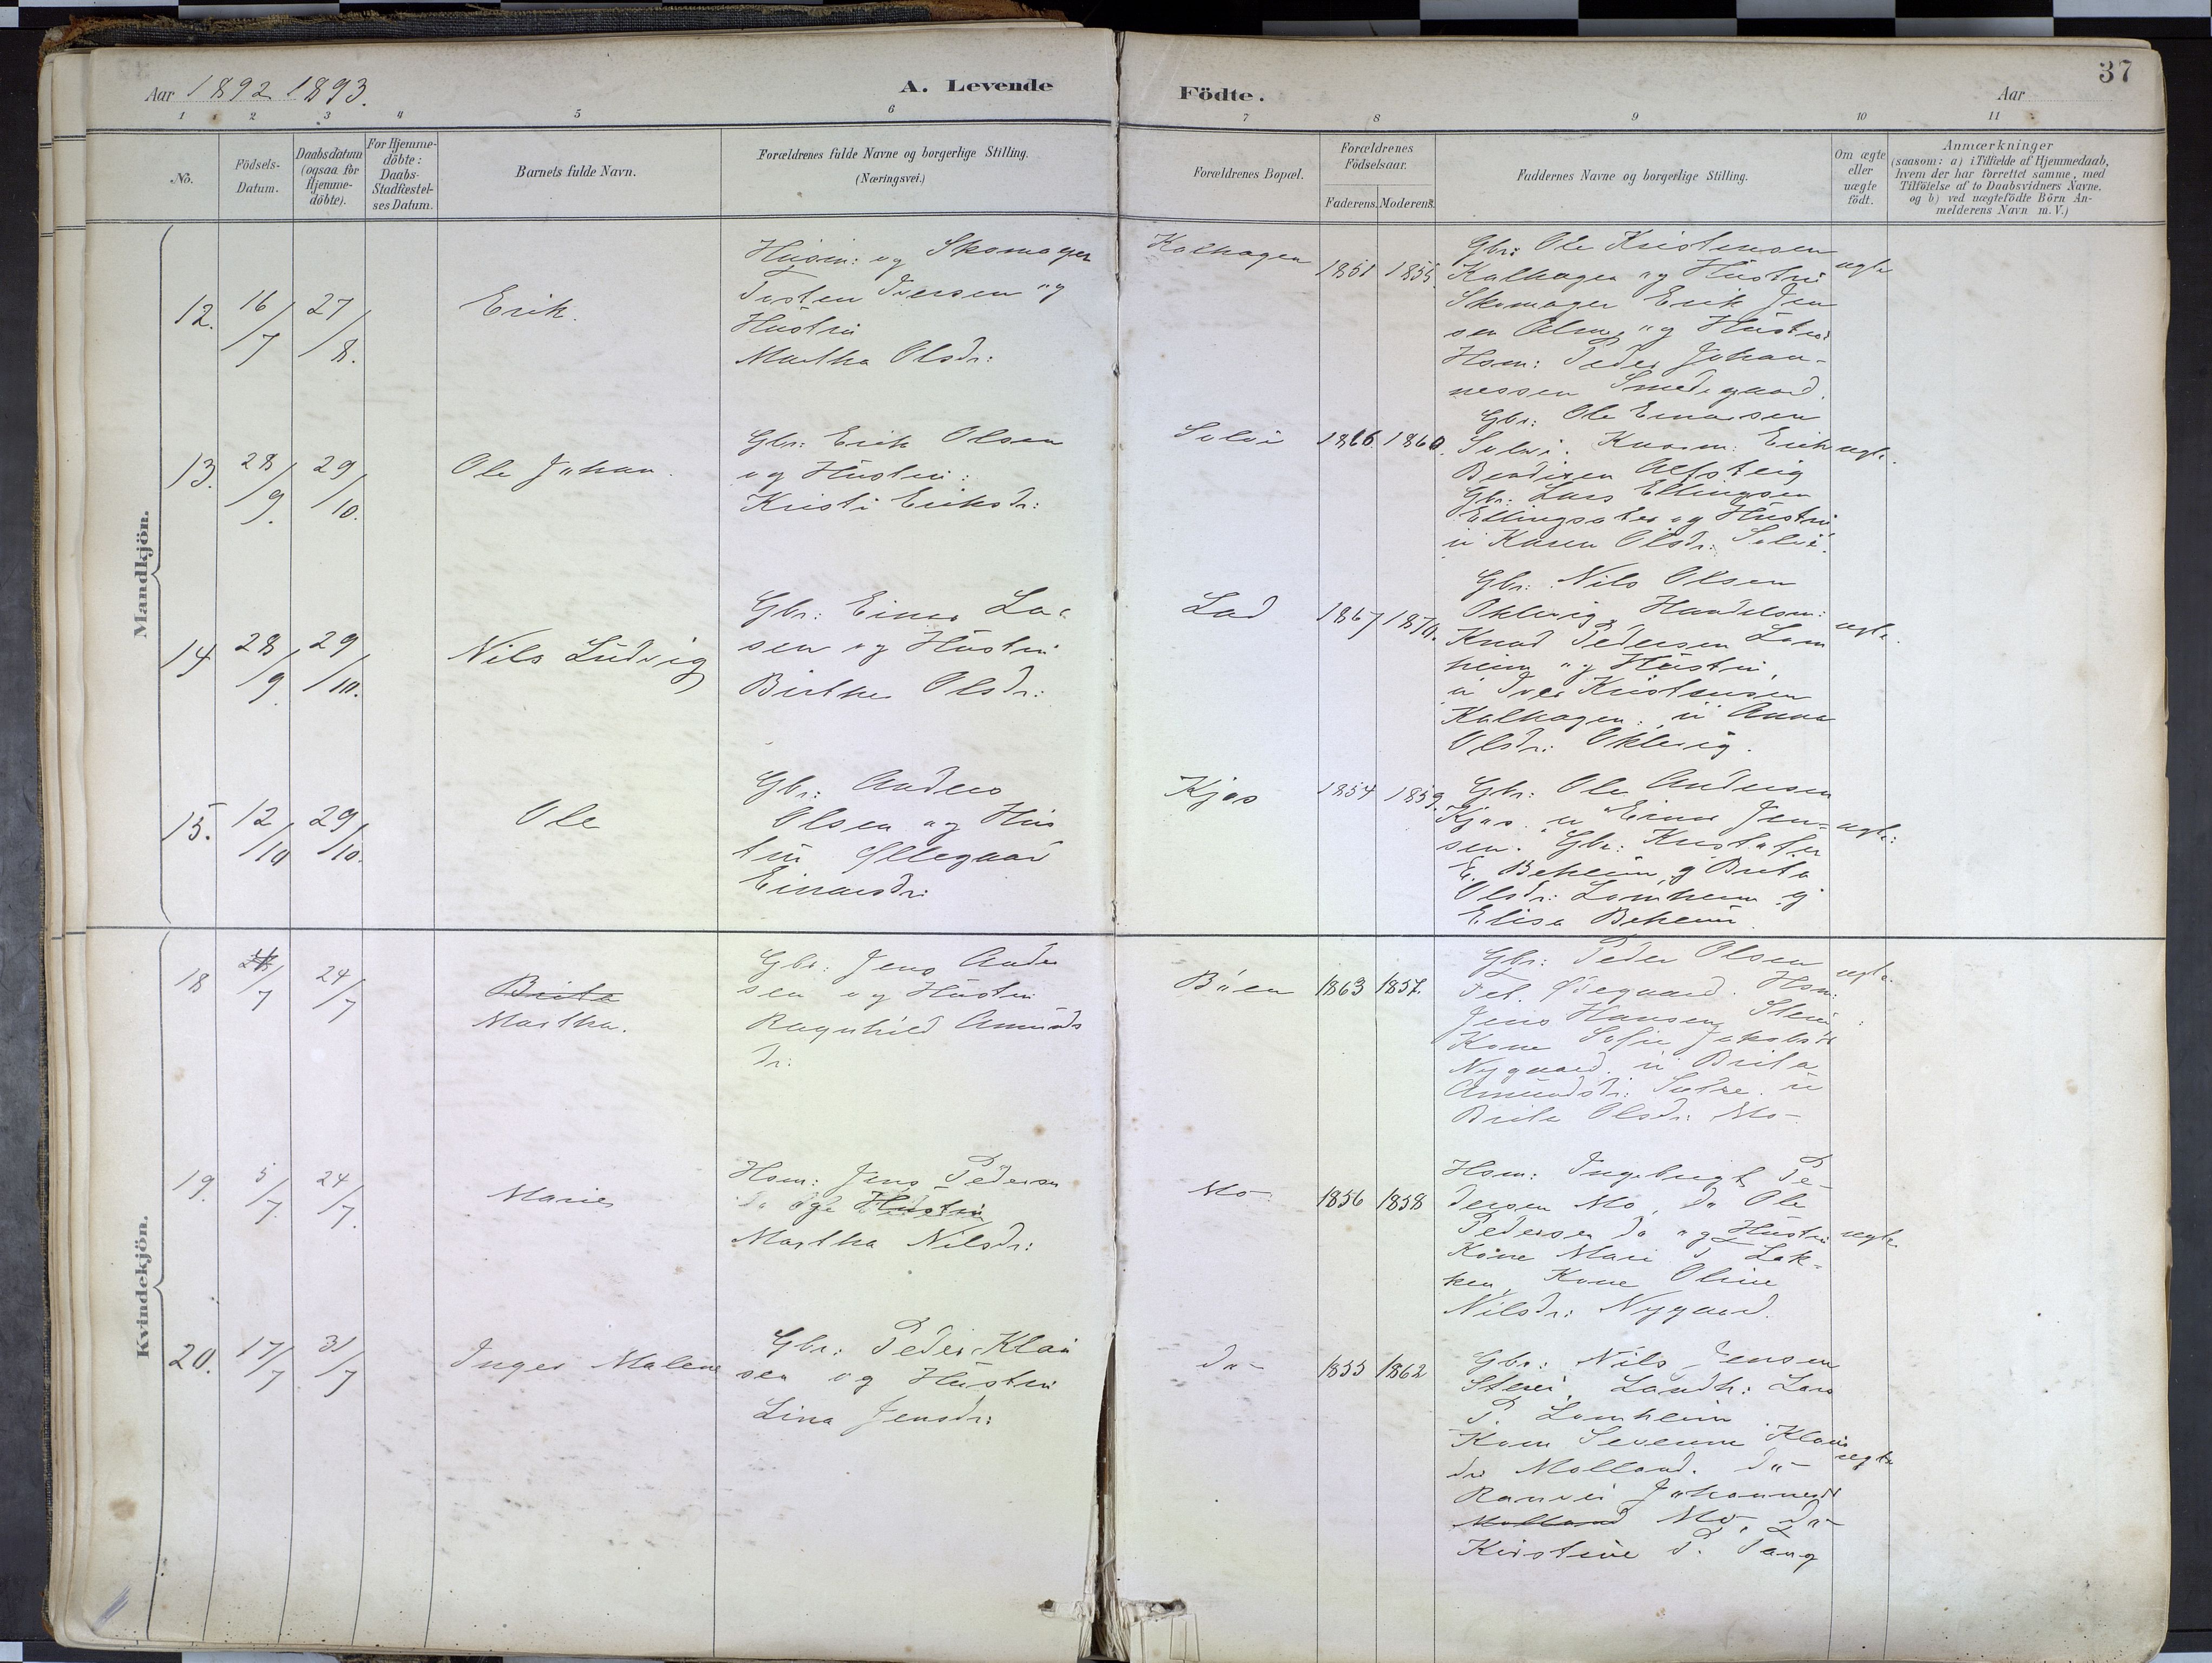 37
Aar 1892 1893.
A. Levende Födte.
Aar
1 2 3 4 5 6 7 8 9 10 11
No.
Födsels-Datum.
Daabsdatum (ogsaa for Hjemme-döbte).
For Hjemme-döbte: Daabs-Stadfæstel-ses Datum.
Barnets fulde Navn.
Forældrenes fulde Navne og borgerlige Stilling.
(Næringsvei.)
Forældrenes Bopæl.
Forældrenes Födselsaar.
Faderens. Moderens.
Faddernes Navne og borgerlige Stilling.
Om ægte eller uægte födt.
Anmærkninger
(saasom: a) i Tilfælde af Hjemmedaab,
hvem der har forrettet samme, med
Tilföielse af to Daabsvidners Navne.
og b) ved uægtefödte Börn An-
melderens Navn m. V.)
Mandkjön.
12. 16/7 27/8.
Erik.
Husm: og Skomager
Torsten Iversen og
Hustru
Martha Olsdr:
Kalhagen
1851 1855.
Gbr: Ole Kristensen
Kalhagen og Hustru
Skomager Erik Jen
sen og Hustru
Hsm: Peder Johan-
nessen Smedegaard.
ægte
13. 28/9. 29/10.
Ole Johan.
Gbr: Erik Olsen
og Hustru:
Kristi Eriksdr:
Solvi
1866. 1860.
Gbr: Ole Einarsen
Solvi. Erik
Bendixen
Gbr: Lars Ellingsen
og Hustru
u Karen Olsdr: Solvi.
ægte.
14 28/9. 29/10.
Nils Ludvig
Gbr: Einar La
sen og Hustru
Birthe Olsdr:
Lad
1867 1870.
Gbr: Nils Olsen
Oklevig, Handelsm:
Knud Pedersen Lom
heim og Hustru,
u Iver Kristensen
Kalhagen: u Anna
Olsdr: Oklevig.
ægte.
15. 12/10 29/10.
Ole
Gbr: Anders
Olsen og Hus
tru Ollegaard
Einarsdr:
Kjos
1854 1859.
Gbr: Ole Andersen
Kjos. u Einar Jen-
sen. Gbr: Kristofer
E. Beheim, og Brita
Olsdr: Lomheim og
Elisa Beheim
ægte:
Kvindekjön.
18 /7 24/7
Brita
Martha.
Gbr: Jens Ander
sen og Hustru
Ragnhild Amunds
dr:
Böen
1863 1857.
Gbr: Peder Olsen
Øiegaard. Hsm:
Jens Hansen Steii:
Kone Sofie Jakobsdr
Nygaard. u Brita
Amundsdr: u
Brita Olsdr: Mo-
ægte.
19. 5/7. 24/7.
Marie
Hsm: Jens Pedersen
Hustru
Martha Nilsdr:
Mo
1856 1858
Hsm: Ingebrigt Pe-
dersen Mo, do Ole
Pedersen do og Hustru
Kone Mari
Kone Oline
Nilsdr: Nygaard.
ægte
20. 17/7 31/7
Inger Malene
Gbr: Peder Klau
sen og Hustru
Lina Jensdr:
do-
1855 1862
Gbr: Nils Jensen
Steii, Landh: Lars
P. Lomheim
Kone Severine Klaus
dr Molland. do-
Ranvei Johannesdr
Molland Mo, do-
Kirstine P. Tang
ægte